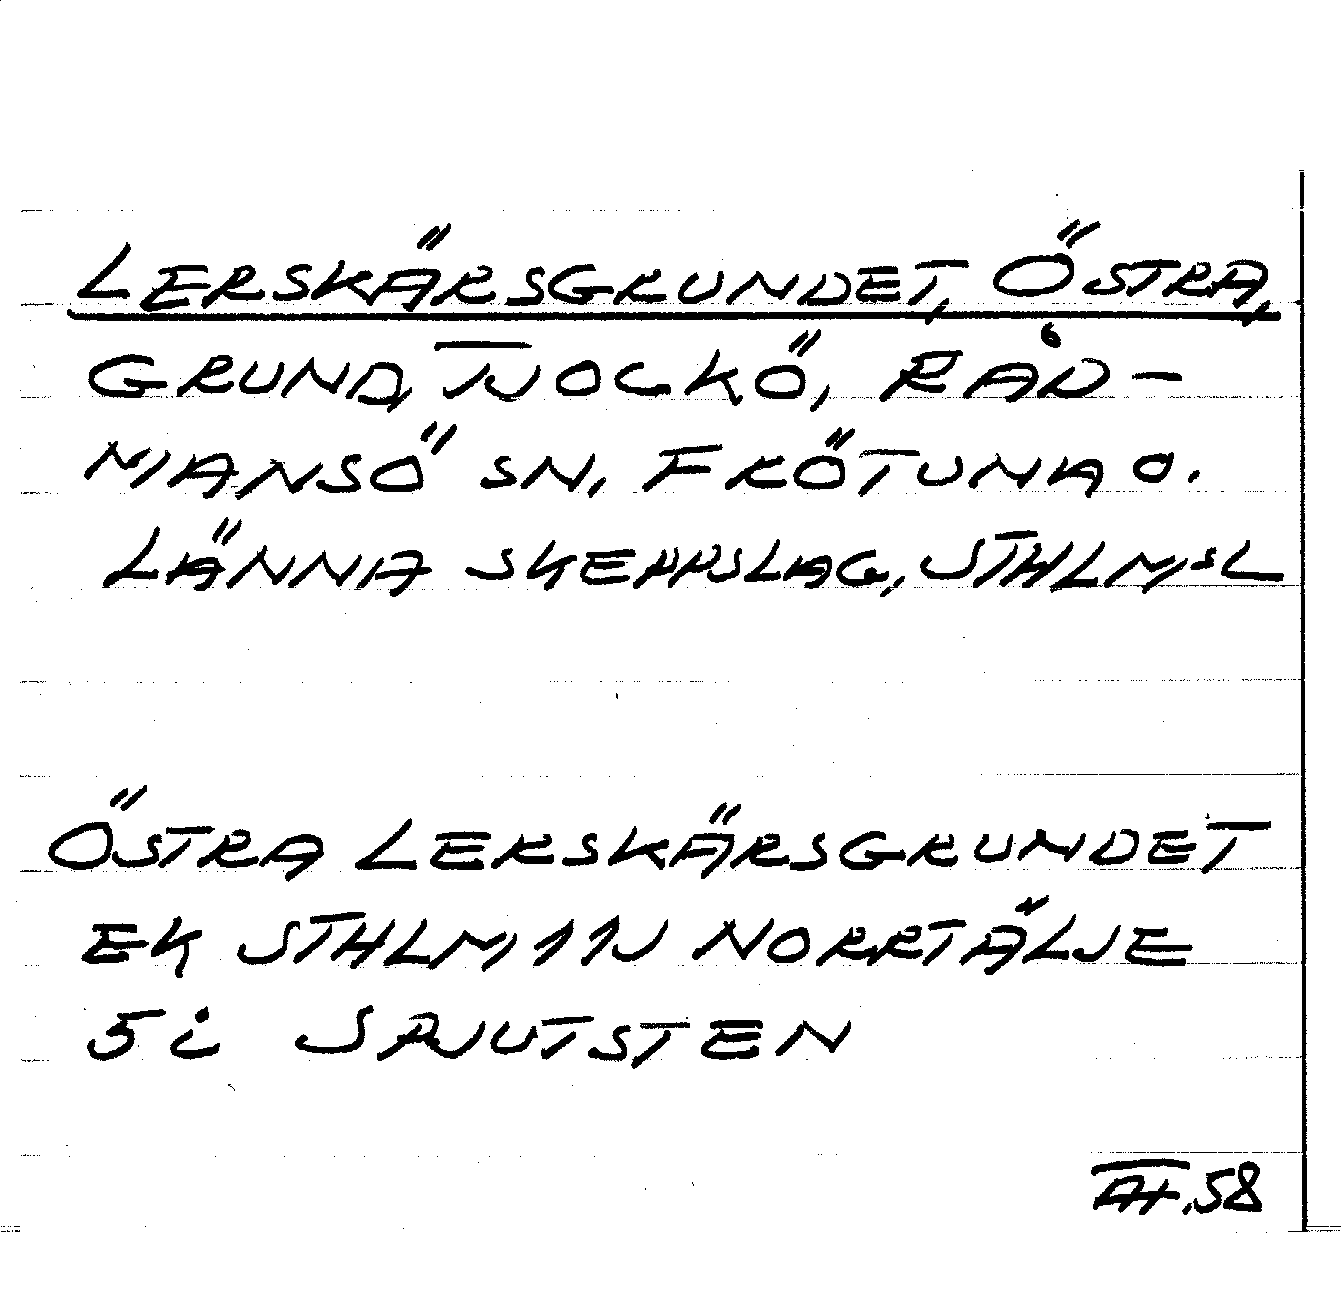 LERSKÄRSGRUNDET, ÖSTRA,
GRUND, TJOCKÖ, RÅD-
MANSÖ SN, FRÖTUNA O.
LÄNNA SKEPPSLAG, STHLMSL
ÖSTRA LERSKÄRSGRUNDET
EK STHLM 11J NORRTÄLJE
5 i SPJUTSTEN
58